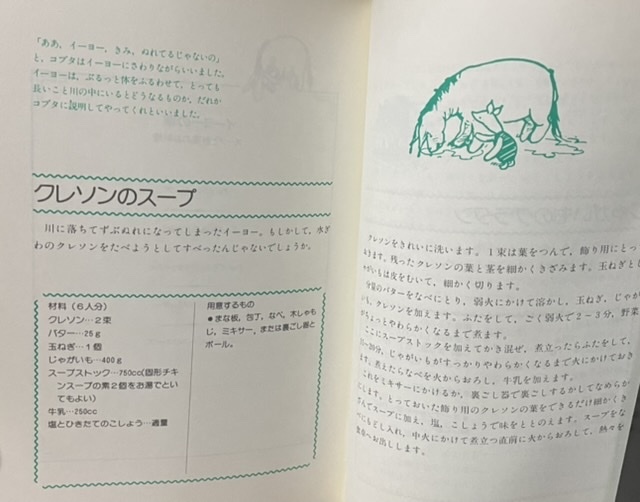 「ああ，イーヨー，きみ，ぬれてるじゃないの」
と，コブタはイーヨーにさわりながらいいました。
イーヨーは，ぶるっと体をふるわせて，とっても
長いこと川の中にいるとどうなるものか，だれか
コブタに説明してやってくれといいました。
クレソンのスープ
川に落ちてずぶぬれになってしまったイーヨー。もしかして，水ぎ
わのクレソンをたべようとしてすべったんじゃないでしょうか。
材料（6人分）
クレソン…2束
バター…25g
玉ねぎ…1個
じゃがいも…400g
スープストック…750cc(固形チキ
ンスープの素2個をお湯でとい
てもよい)
牛乳…250cc
塩とひきたてのこしょう…適量
用意するもの
●まな板，包丁，なべ，木しゃも
じ，ミキサー，または裏ごし器と
ボール。
クレソンをきれいに洗います。1束は葉をつんで，飾り用にとって
おきます。残ったクレソンの葉と茎を細かくきざみます。玉ねぎとじ
ゃがいもは皮をむいて，細かく切ります。
分量のバターをなべにとり，弱火にかけて溶かし，玉ねぎ，じゃが
いも，クレソンを加えます。ふたをして，ごく弱火で2－3分，野菜
がちょっとやわらかくなるまで煮ます。
ここにスープストックを加えてかき混ぜ，煮立ったらふたをして，
－20分，じゃがいもがすっかりやわらかくなるまで火にかけておき
ます。煮えたらなべを火からおろし，牛乳を加えます。
これをミキサーにかけるか，裏ごし器で裏ごしするかしてなめらか
にします。とっておいた飾り用のクレソンの葉をできるだけ細かくき
ざんでスープに加え，塩，こしょうで味をととのえます。スープをな
べにもどし入れ，中火にかけて煮立つ直前に火からおろして，熱々を
食卓へお出しします。